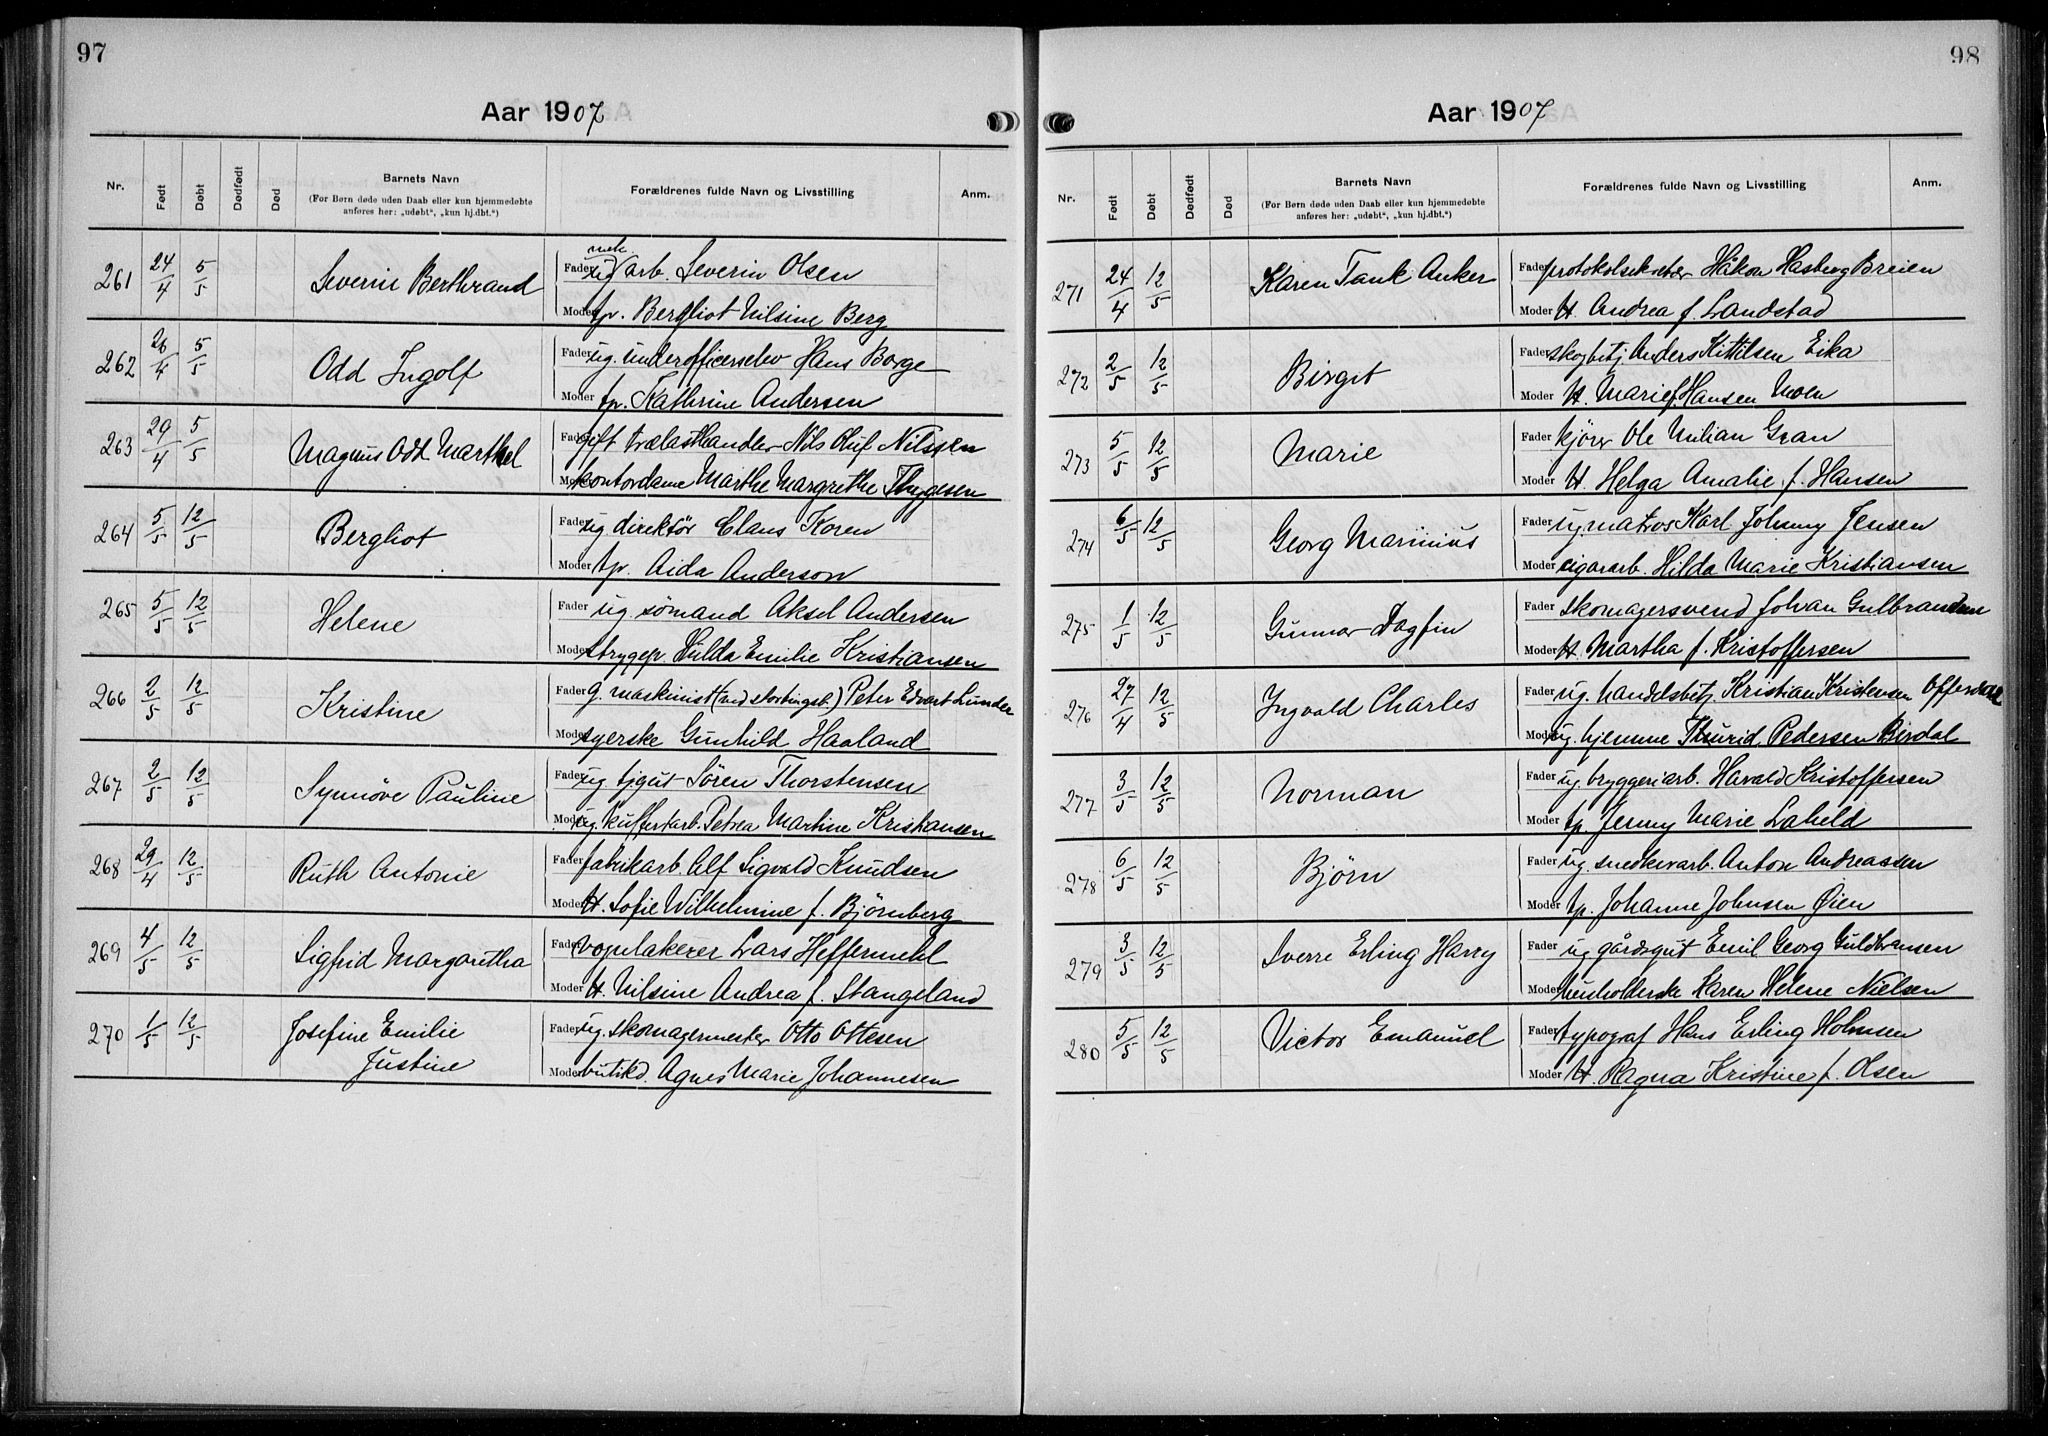 97
Aar 1907
Nr. Født Døbt Dødfødt Død Barnets Navn Forældrenes fulde Navn og Livsstilling Anm.
(For Børn døde uden Daab eller kun hjemmedøbte
anføres her: „udøbt“, „kun hj.dbt.“)
mek.
261 24/4 5/5 Severin Berthrand Fader ug. arb. Severin Olsen
Moder tp. Bergliot Nilsine Berg
262 26/4 5/5 Odd Ingolf Fader ug. underofficerselev Hans Borge
Moder tp. Kathrine Andersen
263 29/4 5/5 Magnus Odd Marthel Fader gift trælasthandler Nils Oluf Nilssen
Moder kontordame Marthe Margrethe Thygesen
264 5/5 12/5 Bergliot Fader ug. direktör Claus Koren
Moder tp. Aida Anderson
265 5/5 12/5 Helene Fader ug. sömand Aksel Andersen
Moder strygep. Hilda Emilie Kristiansen
266 2/5 12/5 Kristine Fader g. maskinist (ved stortingsb.) Peter Edvart Lunder
Moder syerske Gunhild Haaland
267 2/5 12/5 Synnöve Pauline Fader ug. tjgut Sören Thorstensen
Moder ug. kuffertarb. Petrea Martine Kristiansen
268 29/4 12/5 Ruth Antonie Fader fabrikarb. Alf Sigvald Knudsen
Moder H. Sofie Wilhelmine f. Björnberg
269 4/5 12/5 Sigfrid Margaretha Fader vognlakerer Lars Heffermehl
Moder H. Nilsine Andrea f. Stangeland
270 1/5 12/5 Josefine Emilie Fader ug. skomagermester Otto Ottesen
Justine Moder butikd. Agnes Marie Johannesen
98
Aar 1907
Nr. Født Døbt Dødfødt Død Barnets Navn Forældrenes fulde Navn og Livsstilling Anm.
(For Børn døde uden Daab eller kun hjemmedøbte
anføres her: „udøbt“, „kun hj.dbt.“)
271 24/4 12/5 Karen Tank Anker Fader protokolsekretær Håkon Hasberg Breien
Moder H. Andrea f. Landstad
272 2/5 12/5 Birgit Fader skogbetj. Anders Kittilsen Eika
Moder H. Marie f. Hansen Moen
273 5/5 12/5 Marie Fader kjörer Ole Milian Gran
Moder H. Helga Amalie f. Hansen
274 6/5 12/5 Georg Marinius Fader ug. matros Karl Johnny Jensen
Moder cigararb. Hilda Marie Kristiansen
275 1/5 12/5 Gunnar Dagfin Fader skomagersvend Johan Gulbrandsen
Moder H. Martha f. Kristoffersen
276 27/4 12/5 Ingvald Charles Fader ug. handelsbetj. Kristian Kristensen Offerdal
Moder ug. hjemme Thurid Pedersen Birdal
277 3/5 12/5 Norman Fader ug. bryggeriarb. Harald Kristoffersen
Moder tp. Jenny Marie Laheld
278 6/5 12/5 Björn Fader ug. snedkerarb. Anton Andreassen
Moder tp. Johanne Johnsen Øien
279 3/5 12/5 Sverre Erling Harry Fader ug. gårdsgut Emil Georg Guldbransen
Moder husholderske Karen Helene Nielsen
280 5/5 12/5 Victor Emanuel Fader typograf Hans Erling Holmsen
Moder H. Ragna Kristine f. Olsen